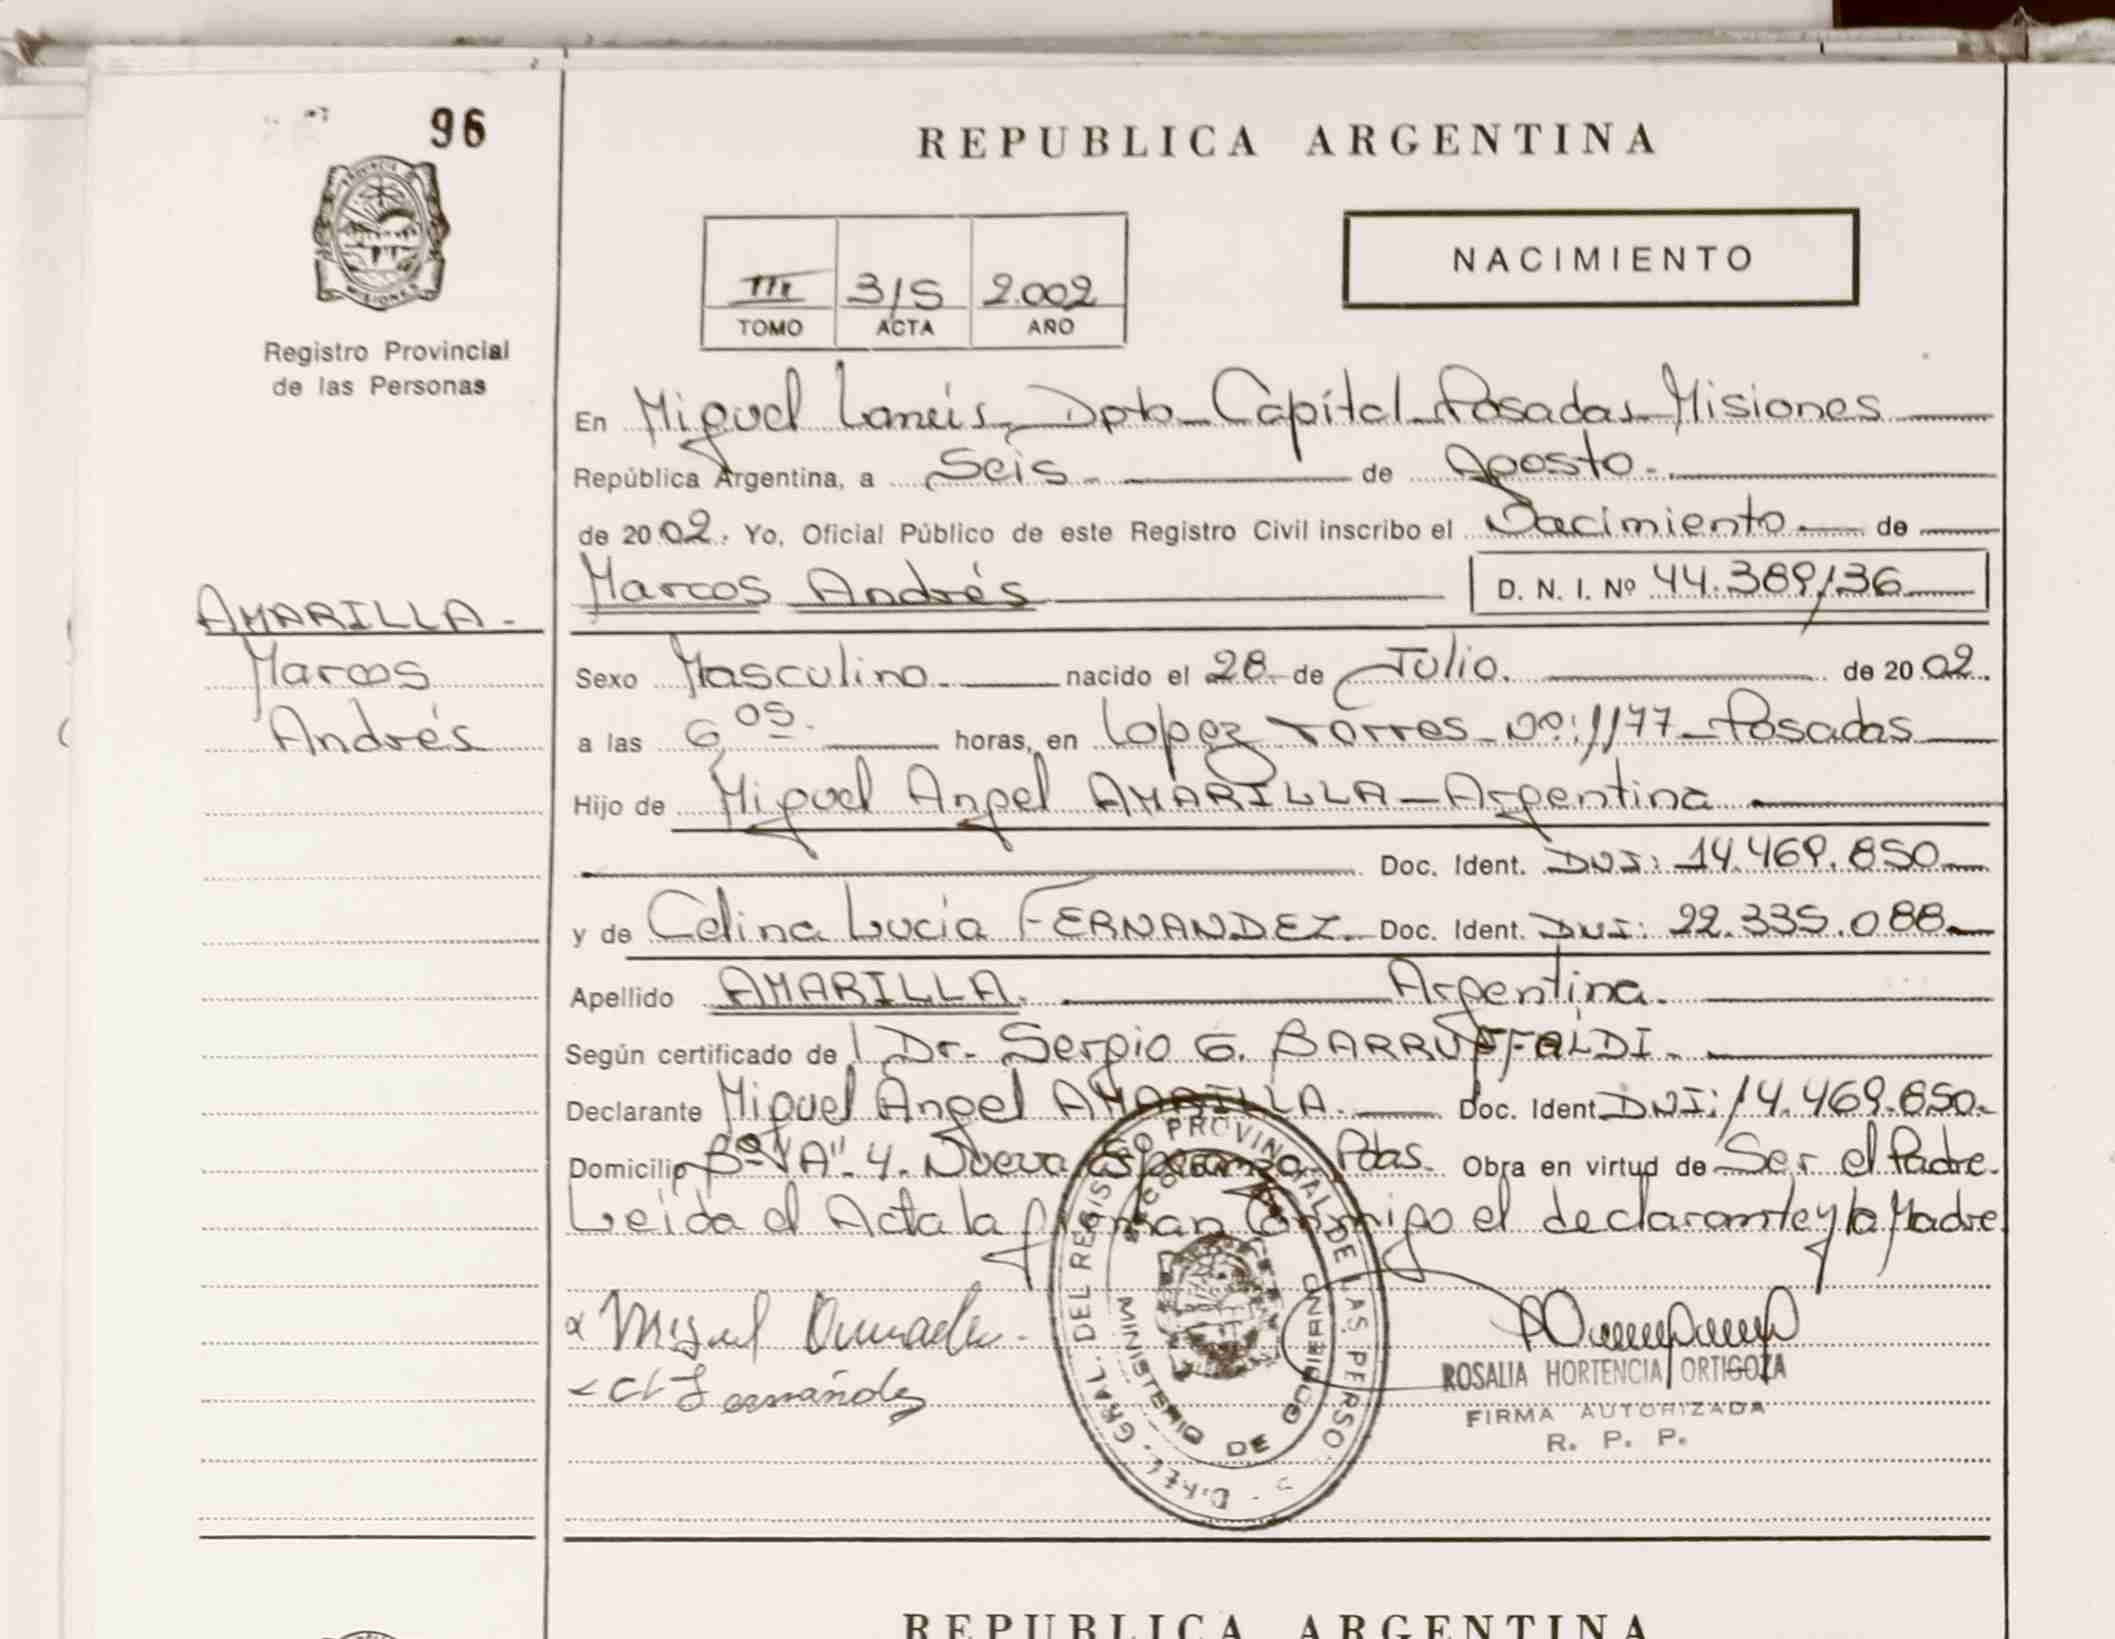 96
PROVINCIA D
MISIONES
Registro Provincial
de las Personas
REPUBLICA ARGENTINA
NACIMIENTO
III 315 2.002
TOMO ACTA AÑO
En Miguel Lanús Dpto Capital Posadas Misiones
República Argentina, a Seis de Agosto.
de 2002. Yo, Oficial Público de este Registro Civil inscribo el Nacimiento de
Marcos Andrés D. N. I. Nº 44.389.136
AMARILLA.
Marcos
Andrés
Sexo Masculino nacido el 28 de Julio. de 2002.
a las 6,05 horas, en Lopez Torres Nº: 1177 Posadas
Hijo de Miguel Angel AMARILLA - Argentina
Doc. Ident. DNI: 14.469.850
y de Celina Lucia FERNANDEZ. Doc. Ident. DNI: 22.335.088
Apellido AMARILLA. Argentina.
Según certificado de Dr. Sergio G. BARRUFFALDI.
Declarante Miguel Angel AMARILLA. Doc. Ident DNI: 14.469.850.
Domicilio Bº "A" 4. Nueva Esperanza Pdas. Obra en virtud de Ser el Padre.
Leida el Acta la firman Conmigo el declarante y la Madre
DIREC. GRAL. DEL REGISTRO PROVINCIAL DE LAS PERSO
MINISTERIO DE GOBIERNO
ROSALIA HORTENCIA ORTIGOZA
FIRMA AUTORIZADA
R. P. P.
REPUBLICA ARGENTINA